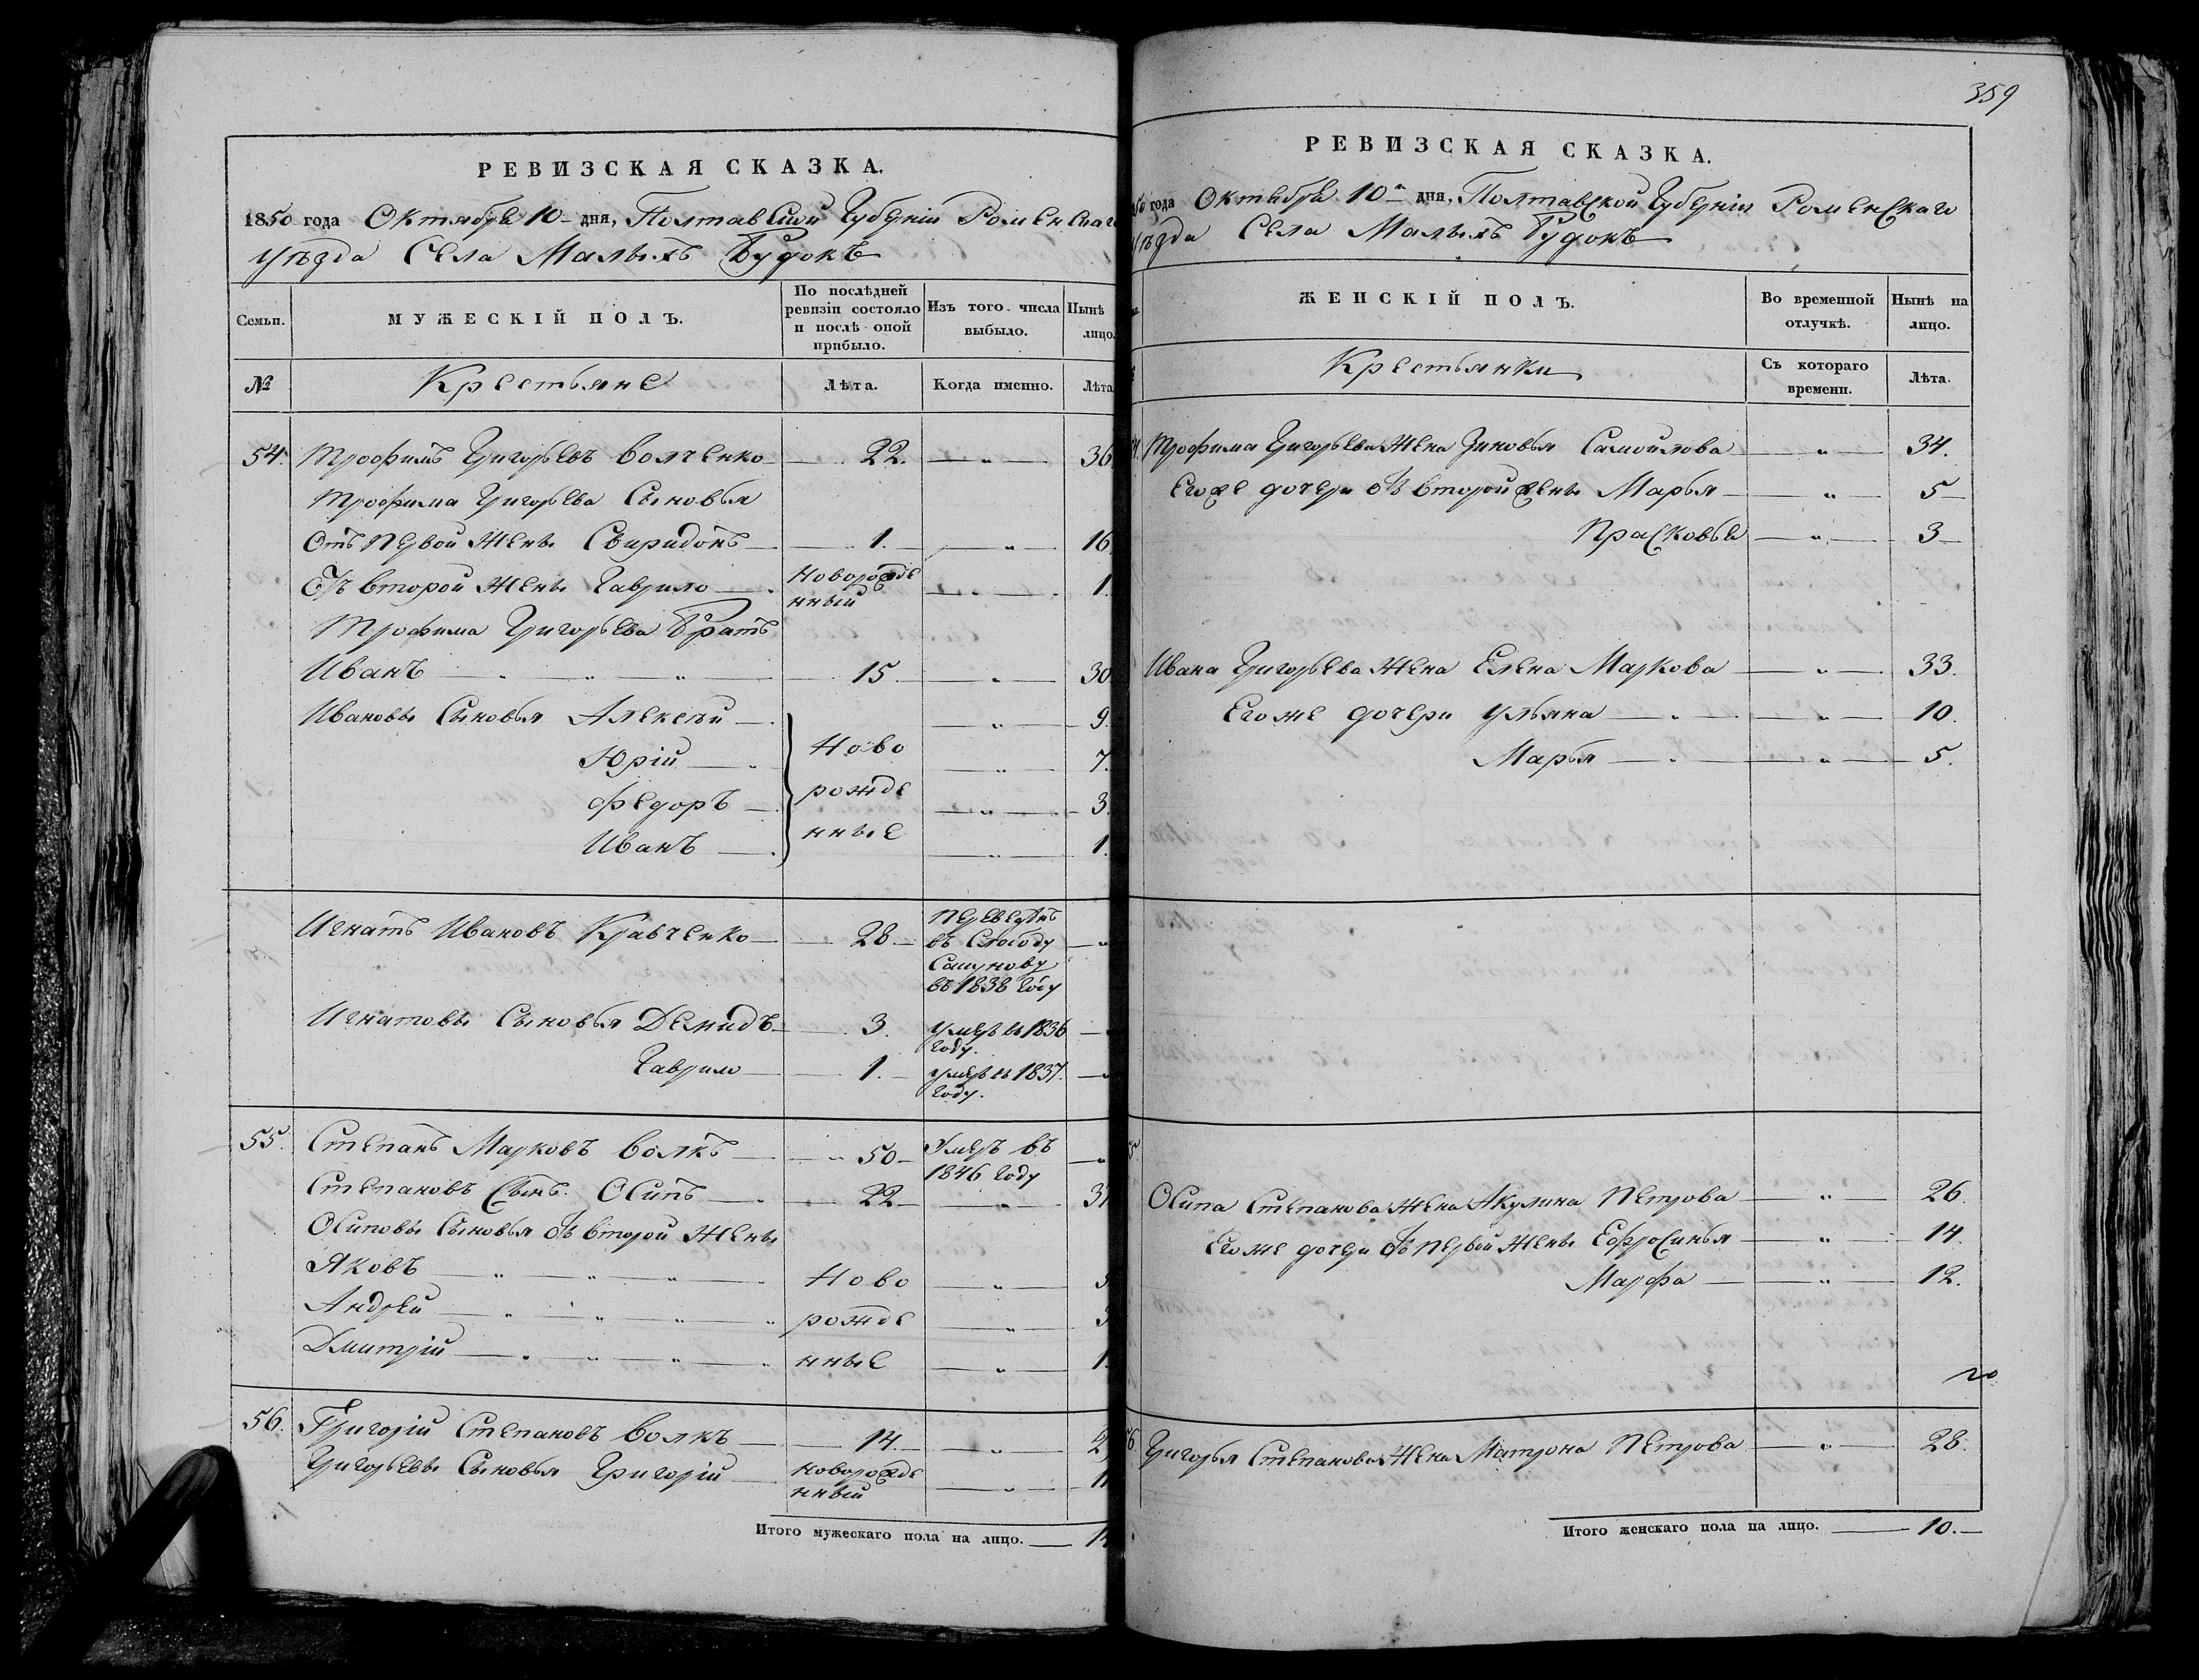 РЕВИЗСКАЯ СКАЗКА.
1850 года Октября 10 дня, Полтавской Губерніи Роменскаго
Уѣзда Села Малыхъ Будокъ
Семьи.
МУЖЕСКІЙ ПОЛЪ.
По послѣдней ревизіи состояло и послѣ оной прибыло.
Изъ того числа выбыло.
Нынѣ лицо.
№
Крестьяне
Лѣта.
Когда именно.
Лѣта
54. Трофимъ Григорьевъ Волченко 22. " 36
Трофима Григорьева Сыновья
Отъ Первой Жены Свиридонъ 1. " 16
Отъ второй Жены Гаврило Новорожде нный " 1.
Трофима Григорьева Братъ
Иванъ " " " 15. " 30
Ивановы Сыновья Алексѣй " 9.
Юрій Ново " 7.
Федоръ рожде " 3.
Иванъ нные " 1.
Игнатъ Ивановъ Кравченко 28 Переведенъ въ Слободу
въ 1838 году "
Игнатовы Сыновья Демидъ 3. умеръ въ 1836 году.
Гаврило 1. умеръ въ 1837. году.
55. Степанъ Марковъ Волкъ 50 Умеръ въ 1846 году "
Степановъ Сынъ Осипъ 22 "
Осиповы Сыновья отъ второй Жены
Яковъ " " " Ново "
Андрей " " " рожде " 3
Дмитрій " " " нные " 1.
56. Григорій Степановъ Волкъ 14. "
Григорьевы Сыновья Григорій новорожде нный " 11
Итого мужескаго пола на лицо.
359
РЕВИЗСКАЯ СКАЗКА.
года Октября 10 дня, Полтавской Губерніи Роменскаго
Уѣзда Села Малыхъ Будокъ
ЖЕНСКІЙ ПОЛЪ.
Во временной отлучкѣ.
Нынѣ на лицо.
Крестьянки
Съ котораго времени.
Лѣта.
Трофима Григорьева Жена Зиновья Самойлова " 34.
Егоже дочери отъ второй жены Марья " 5
Прасковья " 3
Ивана Григорьева Жена Елена Маркова " 33.
Егоже дочери Ульяна " " 10.
Марья " " 5.
Осипа Степанова Жена Акулина Петрова " 26.
Егоже дочери отъ первой Жены Ефросинья " 14.
Марфа " 12.
Григорья Степанова Жена Матрона Петрова " 28.
Итого женскаго пола на лицо. 10.